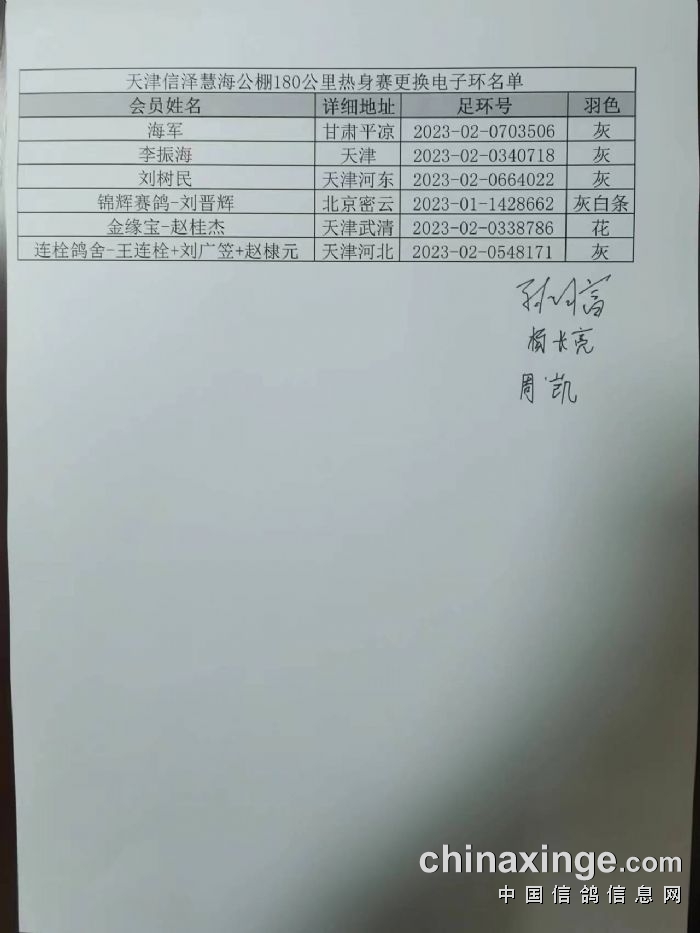 天津信泽慧海公棚180公里热身赛更换电子环名单
会员姓名 详细地址 足环号 羽色
海军 甘肃平凉 2023-02-0703506 灰
李振海 天津 2023-02-0340718 灰
刘树民 天津河东 2023-02-0664022 灰
锦辉赛鸽-刘晋辉 北京密云 2023-01-1428662 灰白条
金缘宝-赵桂杰 天津武清 2023-02-0338786 花
连栓鸽舍-王连栓+刘广笠+赵棣元 天津河北 2023-02-0548171 灰
杨长亮
周凯
chinaxinge.com
中国信鸽信息网